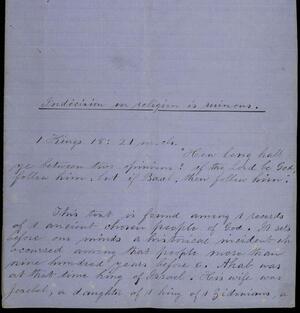 Indecision in religion is ruinous.
1 Kings 18: 21 m. cl.
"How long halt
ye between two opinions? if the Lord be God,
follow him: but if Baal, then follow him."
This text is found among t records
of t ancient chosen people of God. It sets
before our minds a historical incident wh
occurred among that people more than
nine hundred years before C. Ahab was
at that time king of Israel. His wife was
Jezebel, a daughter of t king of t Zidonians, a